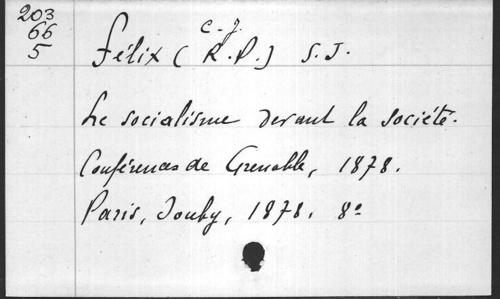 203
66
5
C.J.
Félix (R.P.) S.J.
Le socialisme devant la société.
Conférences de Grenoble, 1878.
Paris, Jouby, 1878. 8°